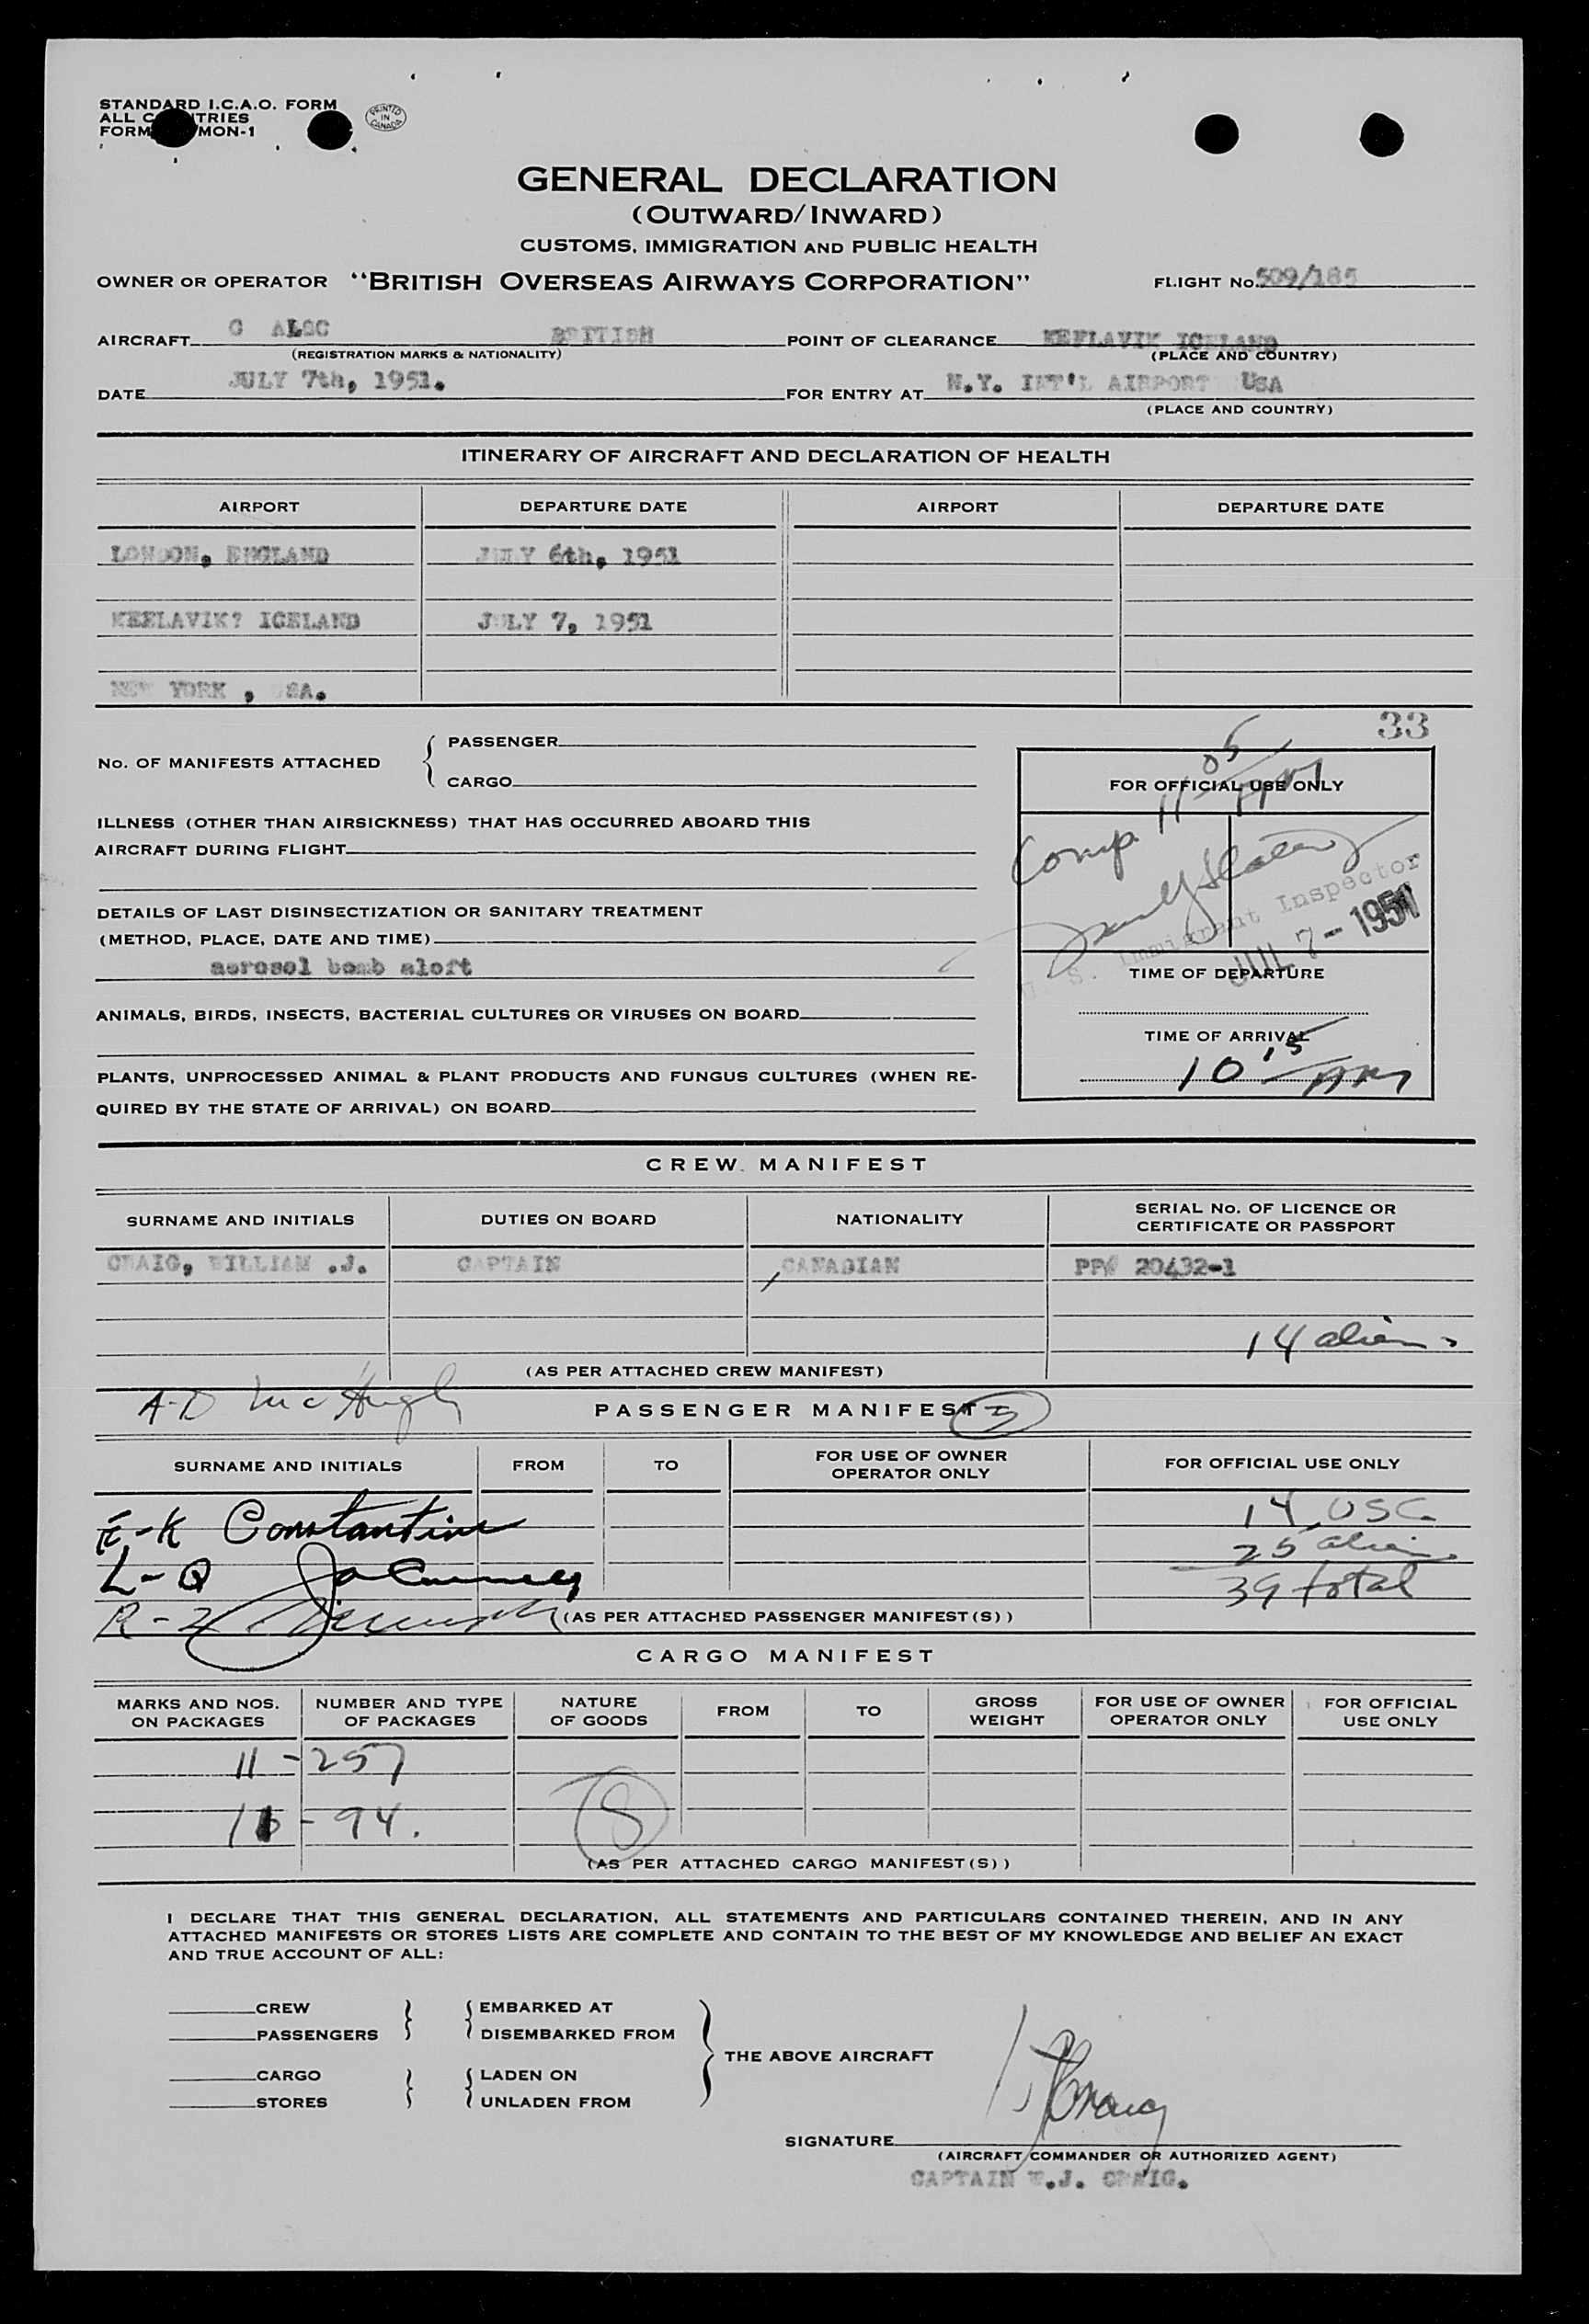 STANDARD I.C.A.O. FORM
ALL C TRIES
FORM MON-1
PRINTED IN CANADA
GENERAL DECLARATION
(OUTWARD/INWARD)
CUSTOMS, IMMIGRATION AND PUBLIC HEALTH
OWNER OR OPERATOR "BRITISH OVERSEAS AIRWAYS CORPORATION" FLIGHT No. 509/185
AIRCRAFT G ALSC BRITISH POINT OF CLEARANCE KEFLAVIK ICELAND
(REGISTRATION MARKS & NATIONALITY) (PLACE AND COUNTRY)
DATE JULY 7th, 1951. FOR ENTRY AT N.Y. INT'L AIRPORT USA
(PLACE AND COUNTRY)
ITINERARY OF AIRCRAFT AND DECLARATION OF HEALTH
AIRPORT DEPARTURE DATE AIRPORT DEPARTURE DATE
LONDON, ENGLAND JULY 6th, 1951
KEFLAVIK? ICELAND JULY 7, 1951
NEW YORK , USA.
33
No. OF MANIFESTS ATTACHED { PASSENGER
CARGO
FOR OFFICIAL USE ONLY
Comp. 11 05 AM
ILLNESS (OTHER THAN AIRSICKNESS) THAT HAS OCCURRED ABOARD THIS
AIRCRAFT DURING FLIGHT
U. S. Immigrant Inspector
JUL 7 - 1951
DETAILS OF LAST DISINSECTIZATION OR SANITARY TREATMENT
(METHOD, PLACE, DATE AND TIME)
aerosol bomb aloft
TIME OF DEPARTURE
ANIMALS, BIRDS, INSECTS, BACTERIAL CULTURES OR VIRUSES ON BOARD
TIME OF ARRIVAL
10 15 AM
PLANTS, UNPROCESSED ANIMAL & PLANT PRODUCTS AND FUNGUS CULTURES (WHEN RE-
QUIRED BY THE STATE OF ARRIVAL) ON BOARD
CREW MANIFEST
SURNAME AND INITIALS DUTIES ON BOARD NATIONALITY SERIAL No. OF LICENCE OR CERTIFICATE OR PASSPORT
CRAIG, WILLIAM .J. CAPTAIN CANADIAN PP# 20432-1
14 aliens
(AS PER ATTACHED CREW MANIFEST)
A-D McHugh
PASSENGER MANIFEST
SURNAME AND INITIALS FROM TO FOR USE OF OWNER OPERATOR ONLY FOR OFFICIAL USE ONLY
E-K Constantine 14 USC
L-Q 25 aliens
R-Z 39 total
(AS PER ATTACHED PASSENGER MANIFEST(S))
CARGO MANIFEST
MARKS AND NOS. ON PACKAGES NUMBER AND TYPE OF PACKAGES NATURE OF GOODS FROM TO GROSS WEIGHT FOR USE OF OWNER OPERATOR ONLY FOR OFFICIAL USE ONLY
11 - 257
- 94.
8
(AS PER ATTACHED CARGO MANIFEST(S))
I DECLARE THAT THIS GENERAL DECLARATION, ALL STATEMENTS AND PARTICULARS CONTAINED THEREIN, AND IN ANY
ATTACHED MANIFESTS OR STORES LISTS ARE COMPLETE AND CONTAIN TO THE BEST OF MY KNOWLEDGE AND BELIEF AN EXACT
AND TRUE ACCOUNT OF ALL:
CREW EMBARKED AT
PASSENGERS DISEMBARKED FROM
THE ABOVE AIRCRAFT
CARGO LADEN ON
STORES UNLADEN FROM
SIGNATURE WJCraig
(AIRCRAFT COMMANDER OR AUTHORIZED AGENT)
CAPTAIN W.J. CRAIG.